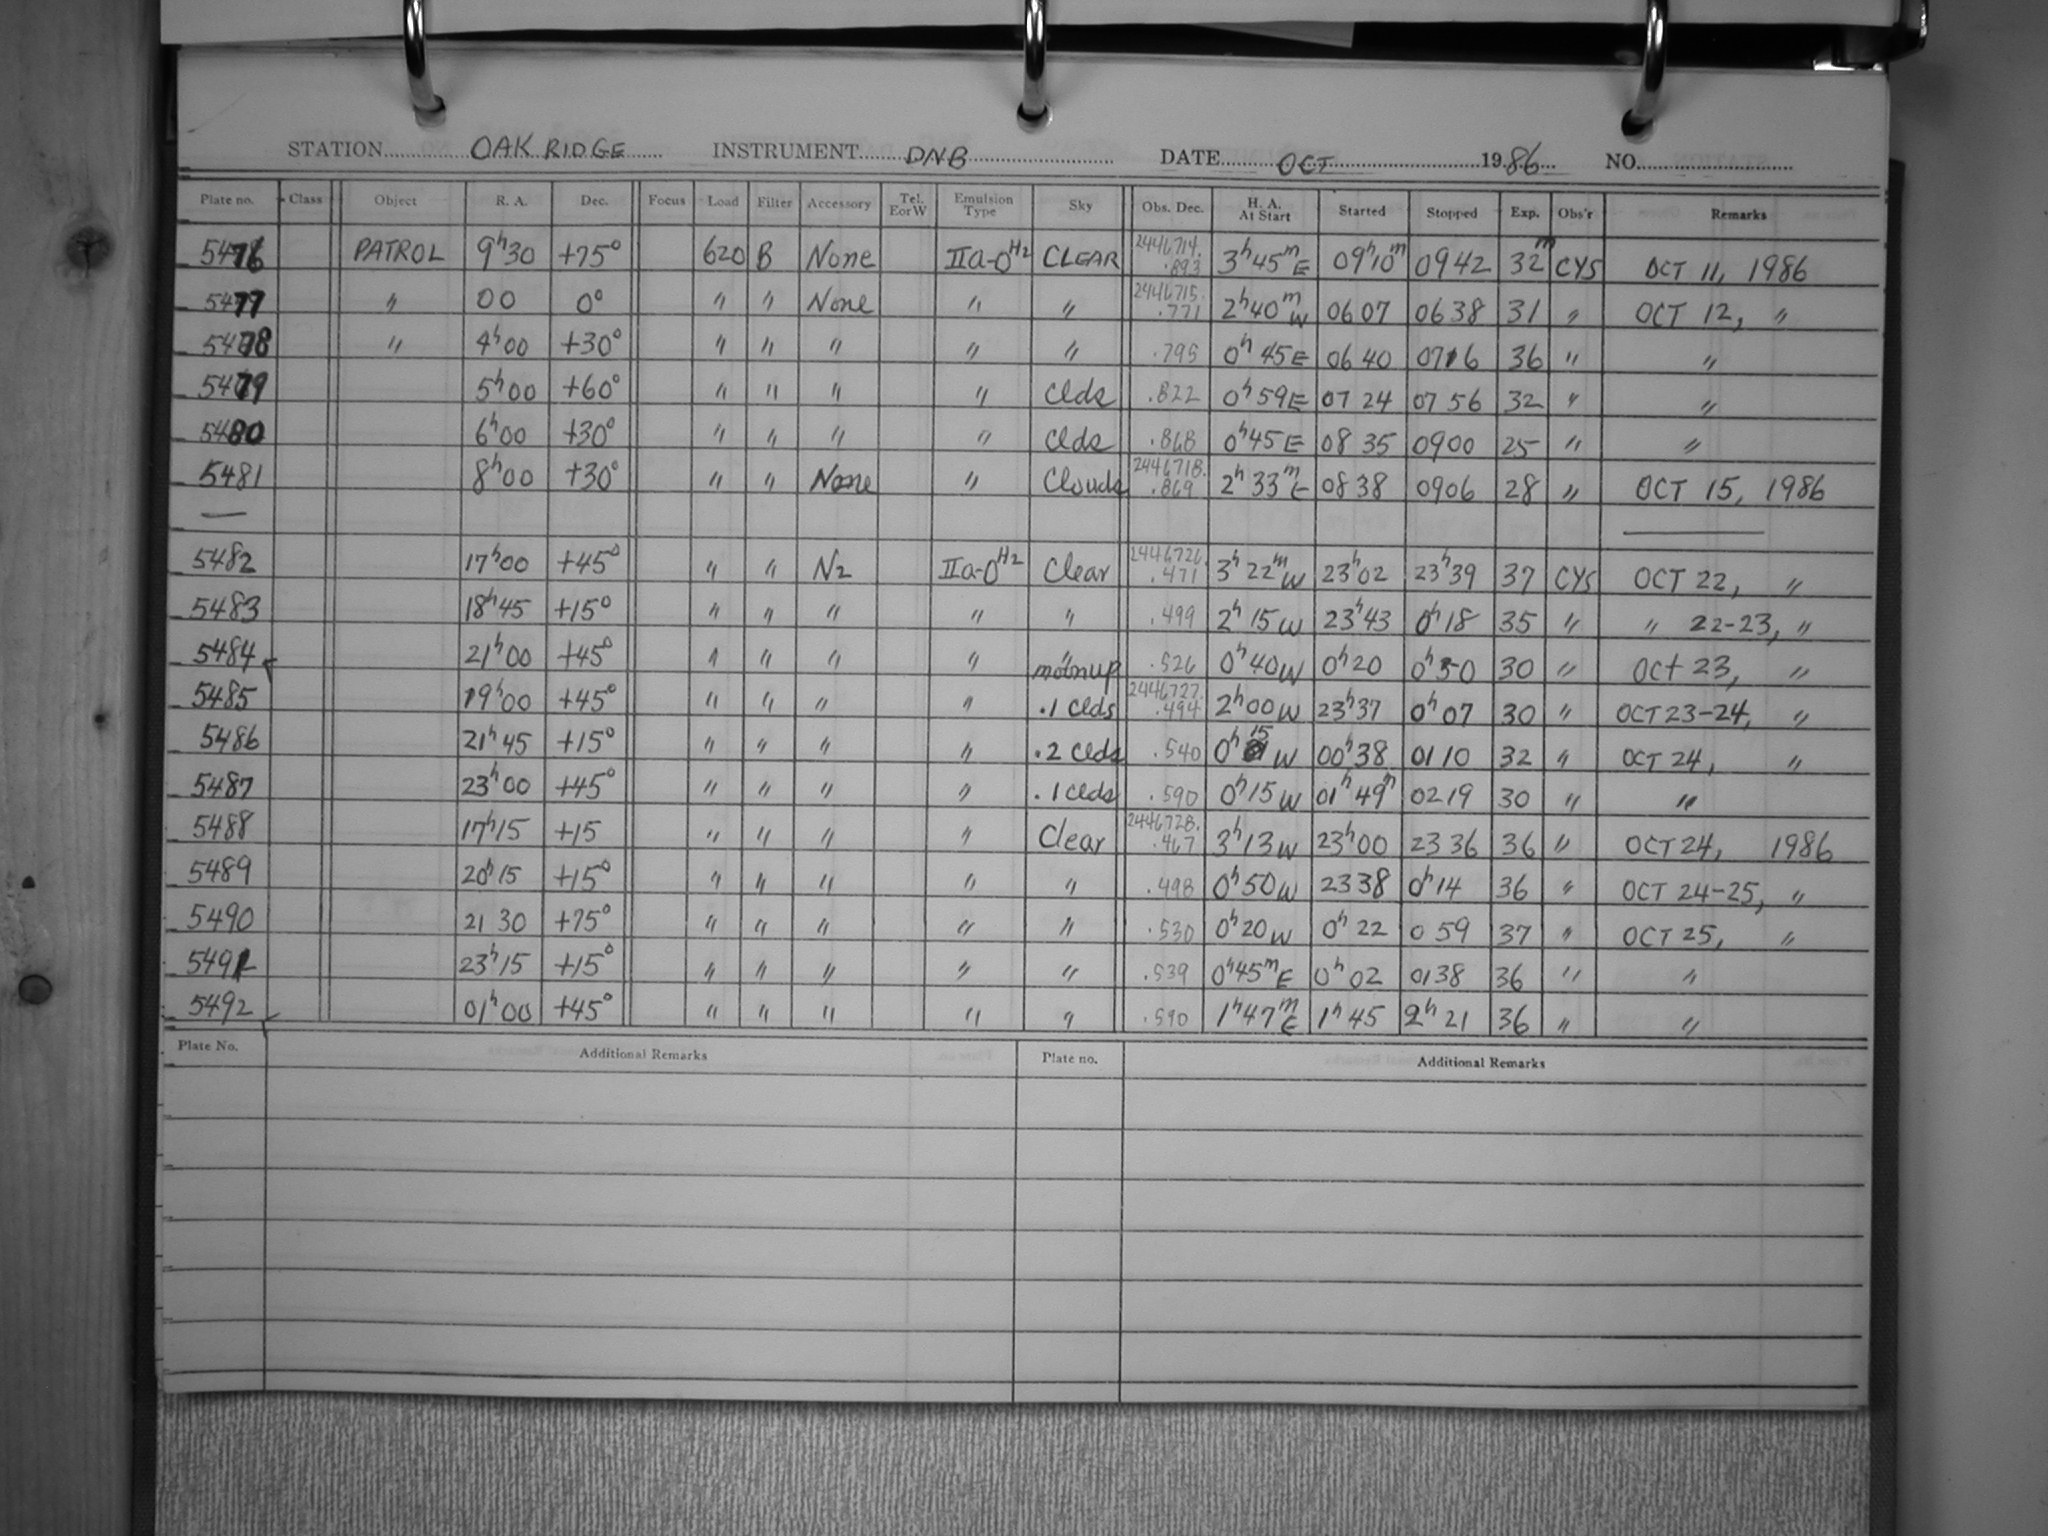 STATION OAK RIDGE INSTRUMENT DNB DATE OCT 1986 NO.
Plate no. Class Object R. A. Dec. Focus Load Filter Accessory Tel. E or W Emulsion Type Sky Obs. Dec. H. A. At Start Started Stopped Exp. Obs'r Remarks
5476 PATROL 9h30 +75° 620 B None IIa-O H2 CLEAR 2446714. .893 3h45m E 09h10m 0942 32m CYS OCT 11, 1986
5477 " 00 0° " " None " " 2446715. .771 2h40m W 0607 0638 31 " OCT 12, "
5478 " 4h00 +30° " " " " " .795 0h45 E 0640 0716 36 " "
5479 5h00 +60° " " " " Clds .822 0h59 E 07 24 07 56 32 " "
5480 6h00 +30° " " " " Clds .868 0h45 E 08 35 0900 25 " "
5481 8h00 +30° " " None " Clouds 2446718. .869 2h33m E 0838 0906 28 " OCT 15, 1986
—
5482 17h00 +45° " " N2 IIa-O H2 Clear 2446726. .471 3h22m W 23h02 23h39 37 CYS OCT 22, "
5483 18h45 +15° " " " " " .499 2h15 W 23h43 0h18 35 " " 22-23, "
5484 21h00 +45° " " " " " moonup .526 0h40 W 0h20 0h50 30 " Oct 23, "
5485 19h00 +45° " " " " .1 clds 2446727. .494 2h00 W 23h37 0h07 30 " OCT 23-24, "
5486 21h45 +15° " " " " .2 clds .540 0h 15 W 00h38 0110 32 " OCT 24, "
5487 23h00 +45° " " " " .1 clds .590 0h15 W 01h49m 0219 30 " "
5488 17h15 +15 " " " " Clear 2446728. .467 3h13 W 23h00 23 36 36 " OCT 24, 1986
5489 20h15 +15° " " " " " .498 0h50 W 2338 0h14 36 " OCT 24-25, "
5490 21 30 +75° " " " " " .530 0h20 W 0h22 0 59 37 " OCT 25, "
5491 23h15 +15° " " " " " .539 0h45m E 0h02 0138 36 " "
5492 01h00 +45° " " " " " .590 1h47m E 1h45 2h21 36 " "
Plate No. Additional Remarks Plate no. Additional Remarks